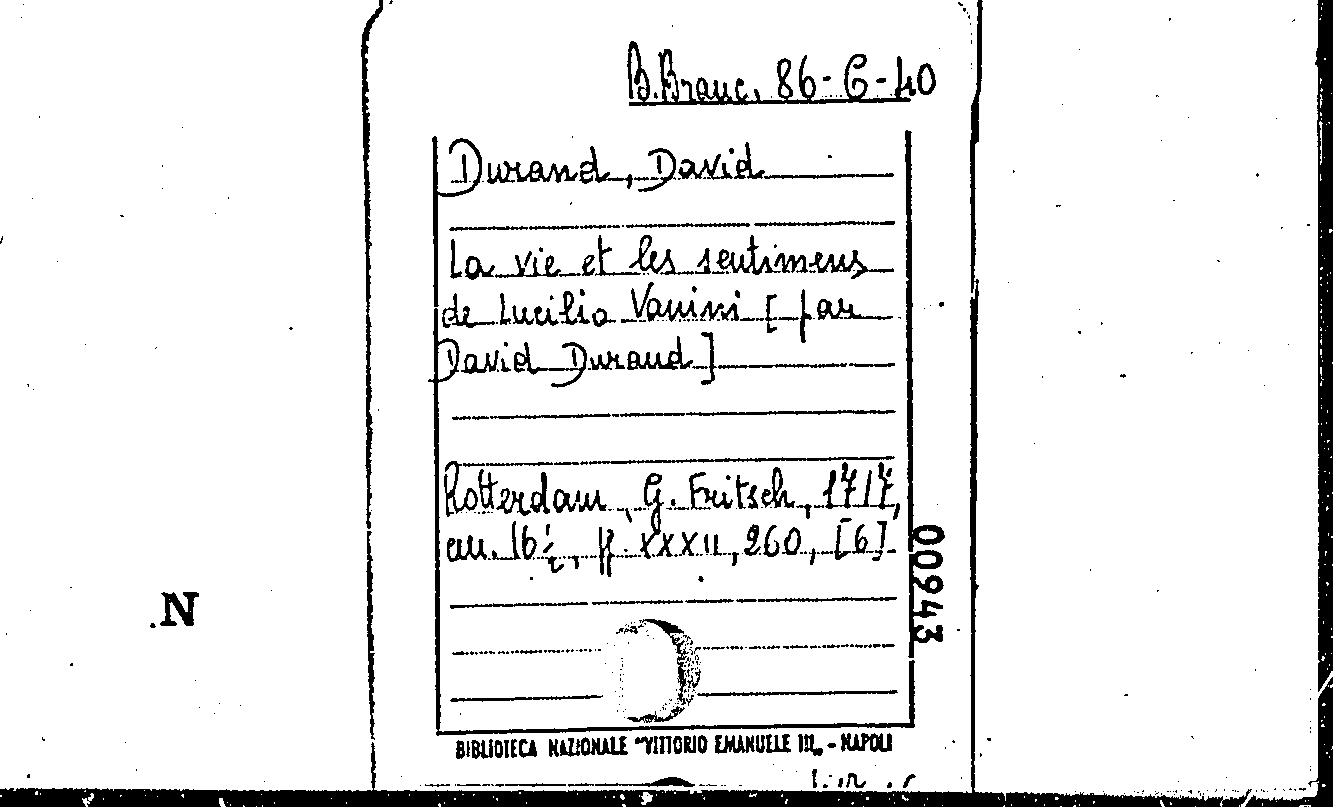 B. Branc. 86-6-40
Durand, David
La vie et les sentimens
de Lucilio Vanini [par
David Durand]
Rotterdam, G. Fritsch, 1717,
cm. 16½, pp. XXXII, 260, [6]
00943
.N
BIBLIOTECA NAZIONALE "VITTORIO EMANUELE III„ - NAPOLI